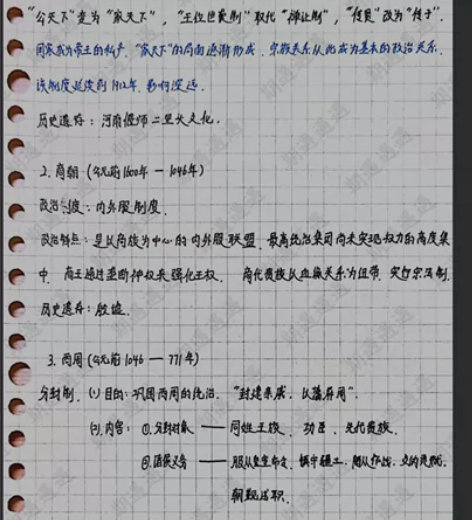 “公天下”变为“家天下”，“王位世袭制”取代“禅让制”，“传贤”改为“传子”.
国家成为帝王的私产. “家天下”的局面逐渐形成. 宗族关系从此成为基本的政治关系.
该制度延续到1912年. 影响深远.
历史遗存：河南偃师二里头文化.
2. 商朝（公元前1600年 — 1046年）
政治制度：内外服制度.
政治特点：是以商族为中心的内外服联盟. 最高统治集团尚未实现权力的高度集
中. 商王通过垄断神权来强化王权. 商代贵族以血缘关系为纽带. 实行宗法制.
历史遗存：殷墟.
3. 西周（公元前1046 — 771年）
分封制. (1) 目的：巩固西周的统治. “封建亲戚. 以藩屏周”.
(2). 内容：①. 分封对象 —— 同姓王族、功臣、先代贵族.
②. 诸侯义务 —— 服从周王命令. 镇守疆土. 随从作战. 交纳贡赋.
朝觐述职.